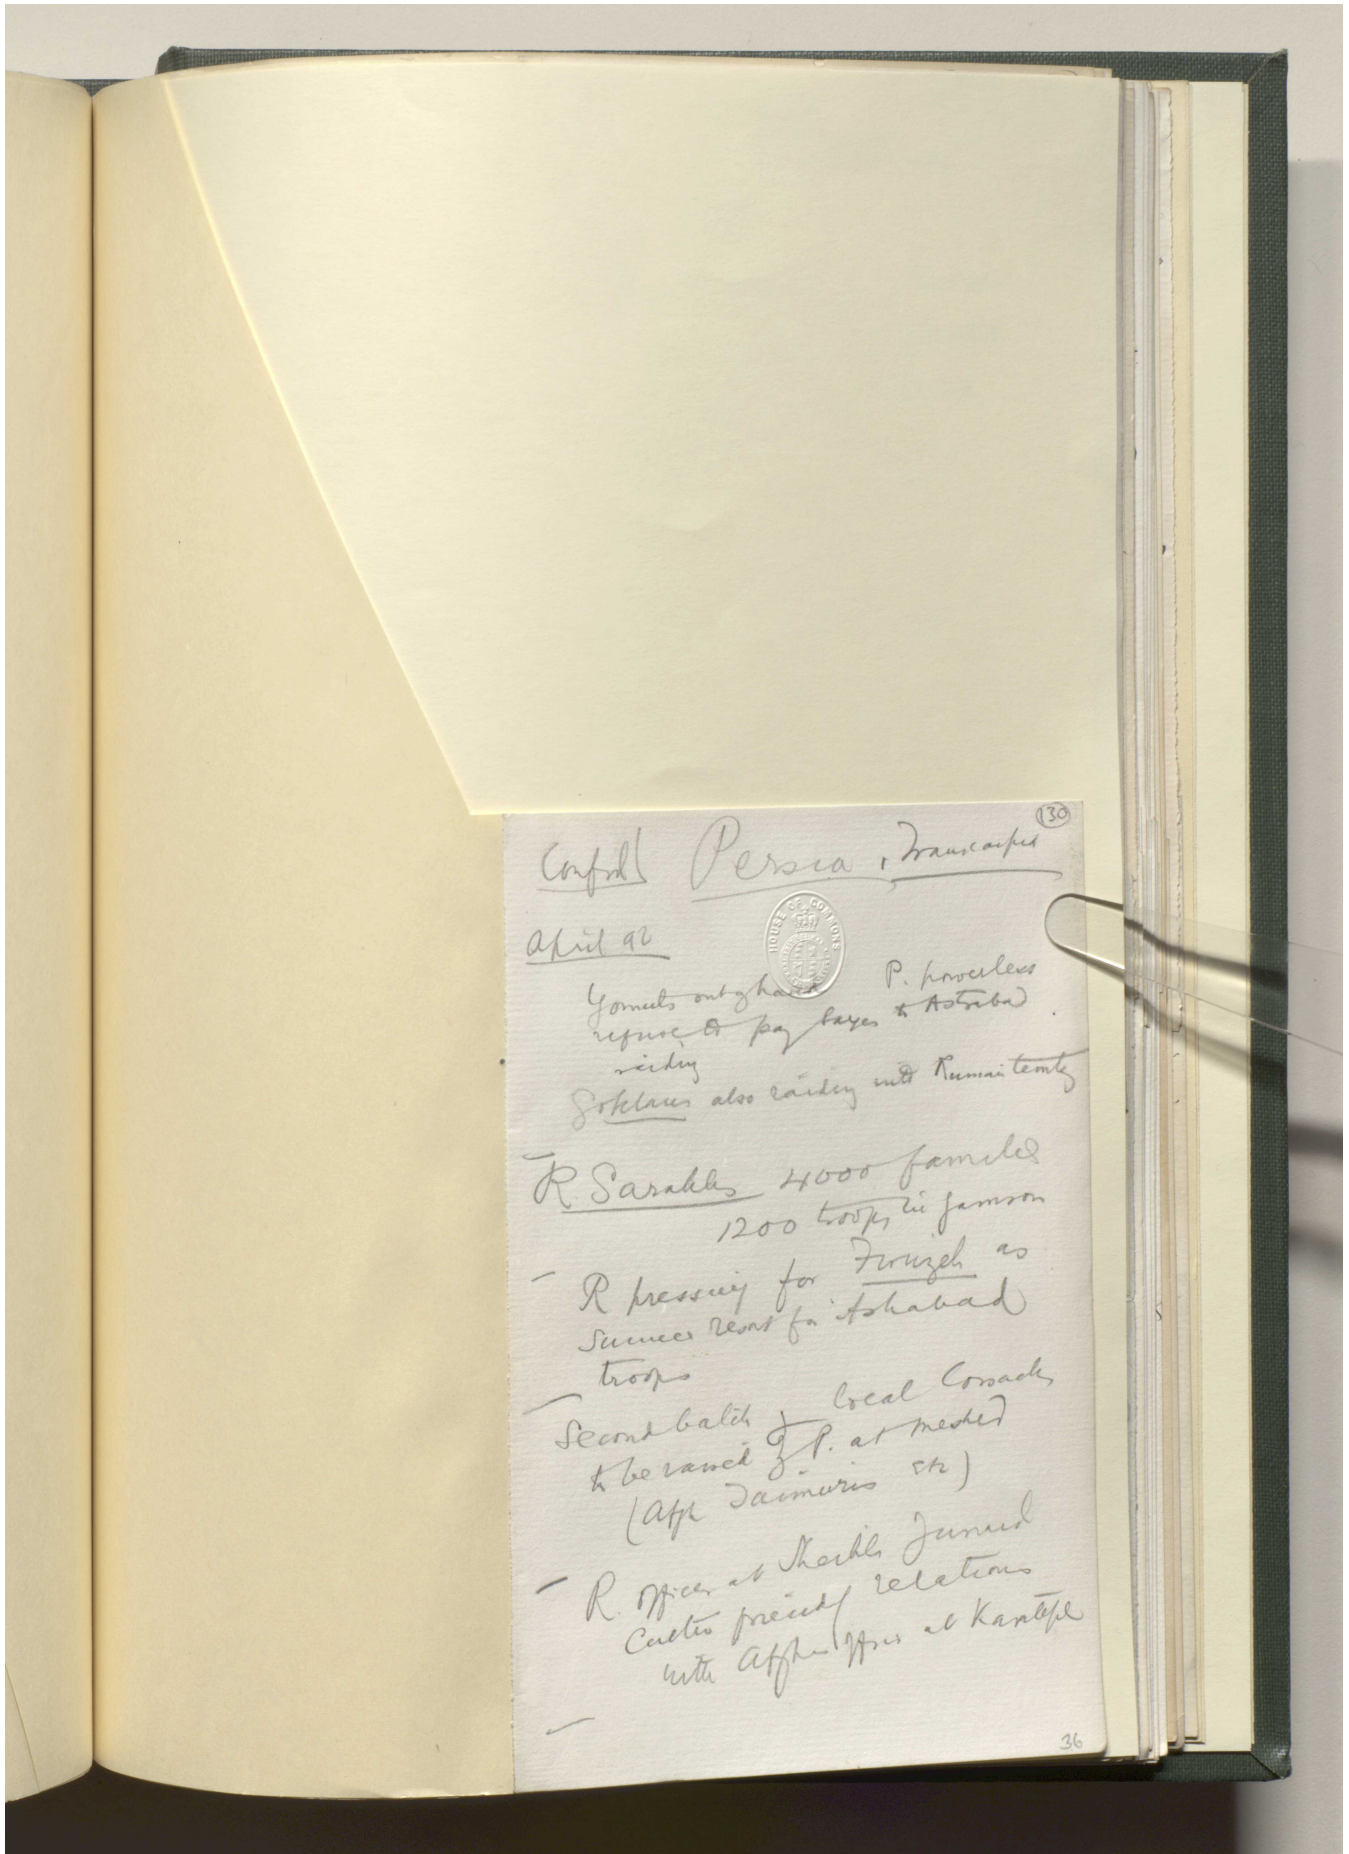 130
Confdl Persia, Transcaspia
HOUSE OF COMMONS
April 92
Yomuts out of hand P. powerless
refuse to pay taxes to Astrabad
raiding
Goklans also raiding into Russian territy
R. Sarakhs 4000 families
1200 troops in garrison
R pressing for Firuzeh as
summer resort for Ashabad
troops
Second batch of local Cossacks
to be raised by P. at Meshed
(Afgh Taimuris etc)
R. officer at Sheikh Junaid
Cultiv friendly relations
with Afghan offrs at Karatepe
36